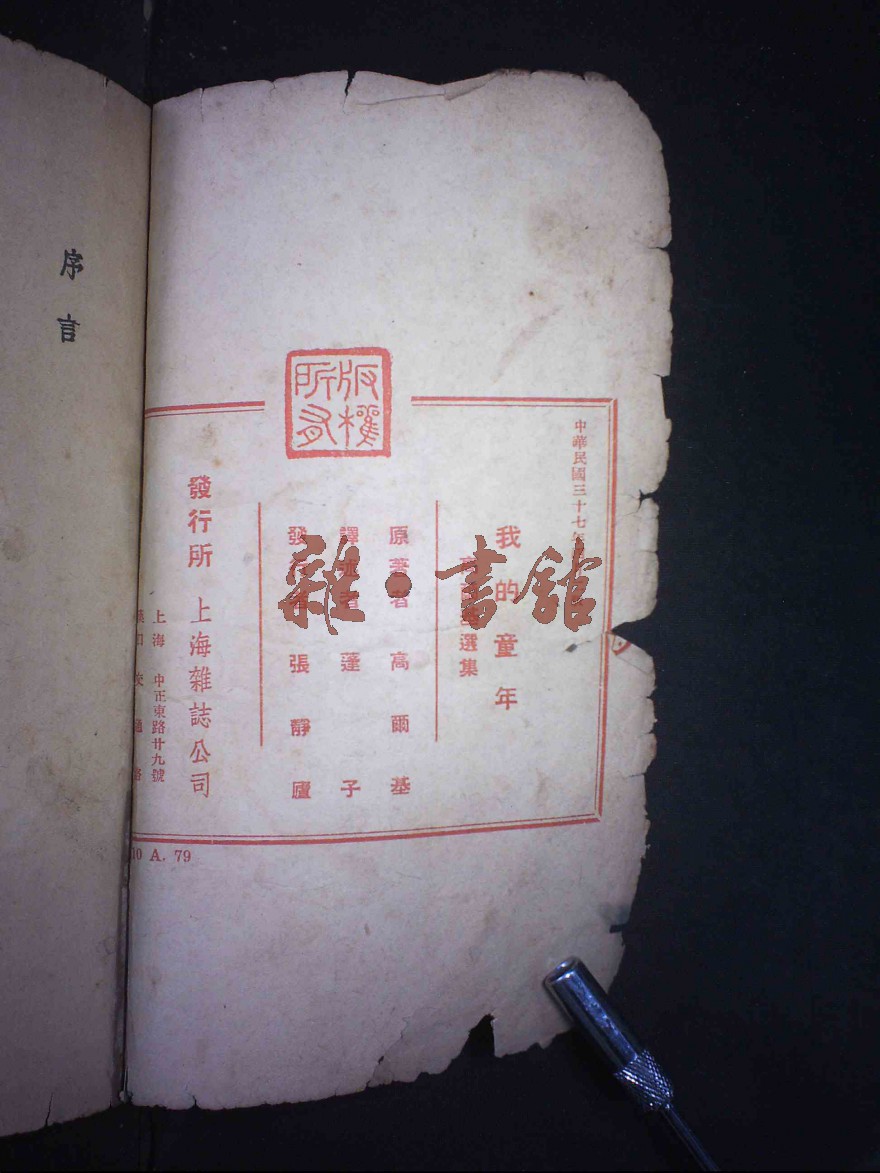 版權所有
中華民國三十七年
我的童年
選集
原著者 高爾基
譯述者 蓬子
發行者 張靜廬
發行所 上海雜誌公司
上海 中正東路廿九號
10 A. 79
序言
雜·書館